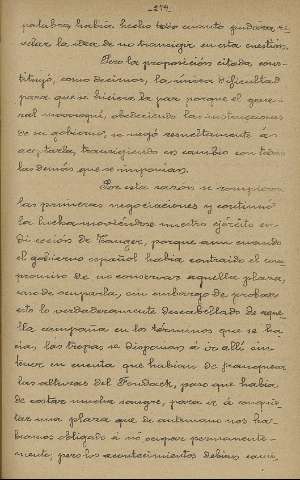 -274-
palabra, había hecho todo cuanto pudiera re-
velar la idea de no transigir en esta cuestión.
Pero la proposición citada, cons-
tituyó, como decimos, la única dificultad
para que se hiciera la paz porque el gene-
ral marroquí, obedeciendo las instrucciones
de su gobierno, se negó resueltamente á
aceptarla, transigiendo en cambio con todas
las demás que se imponían.
Por esta razón se rompieron
las primeras negociaciones y continuó
la lucha moviéndose nuestro ejército en
dirección de Tanger, porque aun cuando
el gobierno español había contraido el com
promiso de no conservar aquella plaza,
caso de ocuparla, sin embargo de probar
esto lo verdaderamente descabellado de aque-
lla campaña en los términos que se ha-
cia, las tropas se disponían á ir allí sin
tener en cuenta que habían de franquear
las alturas del Fondack, paso que había
de costar mucha sangre, para ir á conquis-
tar una plaza que de antemano nos ha-
bíamos obligado á no ocupar permanente-
mente; pero los acontecimientos debían cam-